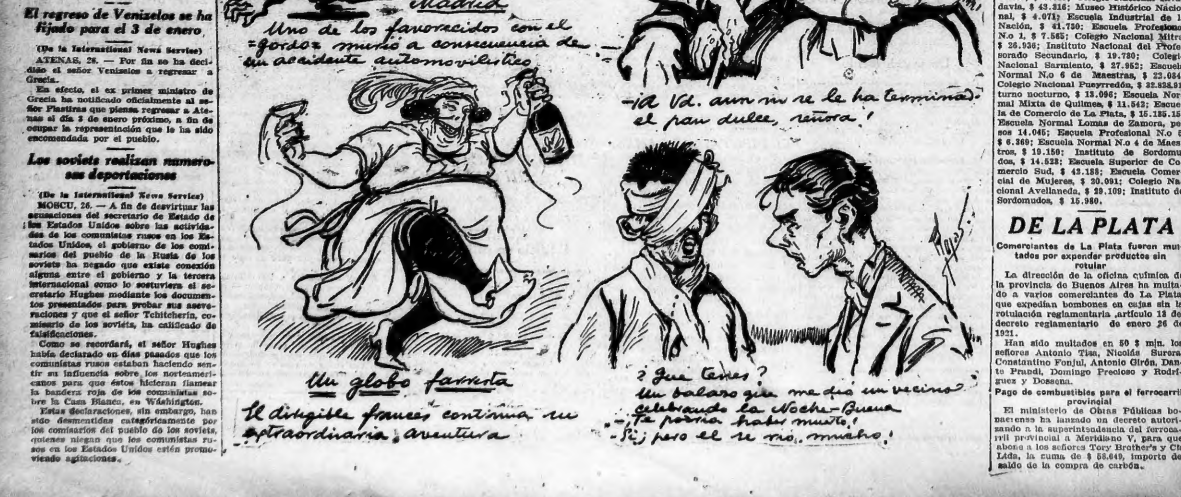 El regreso de Venizelos se ha
fijado para el 3 de enero
(De la International News Service)
ATENAS, 26. — Por fin se ha deci-
dido el señor Venizelos a regresar a
Grecia.
En efecto, el ex primer ministro de
Grecia ha notificado oficialmente al se-
ñor Plastiras que piensa regresar a Ate-
nas el día 3 de enero próximo, a fin de
ocupar la representación que le ha sido
encomendada por el pueblo.
Los soviets realizan numero-
sas deportaciones
(De la International News Service)
MOSCU, 26. — A fin de desvirtuar las
acusaciones del secretario de Estado de
los Estados Unidos sobre las activida-
des de los comunistas rusos en los Es-
tados Unidos, el gobierno de los comi-
sarios del pueblo de la Rusia de los
soviets ha negado que existe conexión
alguna entre el gobierno y la tercera
internacional como lo sostuviera el se-
cretario Hughes mediante los documen-
tos presentados para probar sus aseve-
raciones y que el señor Tchitcherin, co-
misario de los soviéts, ha calificado de
falsificaciones.
Como se recordará, el señor Hughes
había declarado en días pasados que los
comunistas rusos estaban haciendo sen-
tir su influencia sobre los norteameri-
canos para que éstos hicieran flamear
la bandera roja de los comunistas so-
bre la Casa Blanca, en Wáshington.
Estas declaraciones, sin embargo, han
sido desmentidas categóricamente por
los comisarios del pueblo de los soviets,
quienes niegan que los comunistas ru-
sos en los Estados Unidos estén promo-
viendo agitaciones.
Madrid
Uno de los favorecidos con el
=gordo= murió a consecuencia de
un accidente automovilístico
Un globo farrista
El dirigible francés continúa su
extraordinaria aventura
-¡A Vd. aun no se le ha terminado
el pan dulce, señora!
? Que tenes?
Un balazo que me dió un vecino
celebrando la Noche-Buena
-Te podría haber muerto!
-Si; pero el se rio, mucho!
davia, $ 43.316; Museo Histórico Nacio-
nal, $ 4.071; Escuela Industrial de l
Nación, $ 41.730; Escuela Profesiona
N.o 1, $ 7.565; Colegio Nacional Mitre
$ 26.936; Instituto Nacional del Profe
sorado Secundario, $ 19.780; Colegi
Nacional Sarmiento, $ 27.952; Escuel
Normal N.o 6 de Maestras, $ 22.084
Colegio Nacional Pueyrredón, $ 32.828.91
turno nocturno, $ 13.096; Escuela Nor
mal Mixta de Quilmes, $ 11.542; Escue
la de Comercio de La Plata, $ 15.185.15
Escuela Normal Lomas de Zamora, pe
sos 14.045; Escuela Profesional N.o 5
$ 6.369; Escuela Normal N.o 4 de Maes
tros, $ 19.150; Instituto de Sordomu
dos, $ 14.528; Escuela Superior de Co
mercio Sud, $ 43.188; Escuela Comer
cial de Mujeres, $ 20.091; Colegio Na
cional Avellaneda, $ 29.109; Instituto de
Sordomudos, $ 15.980.
DE LA PLATA
Comerciantes de La Plata fueron mul
tados por expender productos sin
rotular
La dirección de la oficina química de
la provincia de Buenos Aires ha multa-
do a varios comerciantes de La Plata
que expedían bombones en cajas sin la
rotulación reglamentaria ,artículo 12 del
decreto reglamentario de enero 26 de
1921.
Han sido multados en 50 $ m|n. los
señores Antonio Tisa, Nicolás Surora
Constantino Fonjul, Antonio Girón, Dan-
te Prandi, Domingo Precioso y Rodrí-
guez y Dossena.
Pago de combustibles para el ferrocarril
provincial
El ministerio de Obras Públicas bo-
naerense ha lanzado un decreto autori-
zando a la superintendencia del ferroca-
rril provincial a Meridiano V, para que
abone a los señores Tory Brother's y Cía
Ltda, la suma de $ 58.649, importe del
saldo de la compra de carbón.